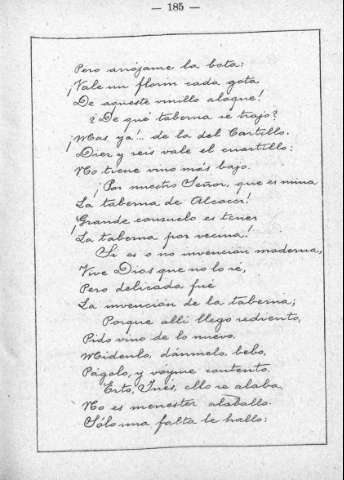 — 185 —
Pero arrójame la bota:
¡Vale un florín cada gota
De aqueste vinillo aloque!
¿De qué taberna se trajo?
¡Mas ya!... de la del Castillo.
Diez y seis vale el cuartillo:
No tiene vino más bajo.
¡Por nuestro Señor, que es mina
La taberna de Alcocer!
¡Grande consuelo es tener
La taberna por vecina!
Si es o no invención moderna,
Vive Dios que no lo sé,
Pero delicada fué
La invención de la taberna;
Porque allí llego sediento,
Pido vino de lo nuevo,
Mídenlo, dánmelo, bebo,
Págolo, y voyme contento.
Esto, Inés, ello se alaba,
No es menester alaballo.
Sólo una falta le hallo: